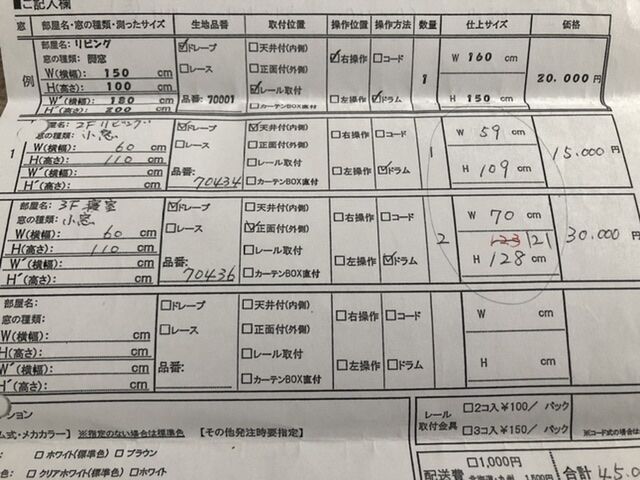 ■ご記入欄
窓 部屋名・窓の種類・測ったサイズ 生地品番 取付位置 操作位置 操作方法 数量 仕上サイズ 価格
例
部屋名: リビング
窓の種類:
W(横幅): 150 cm
H(高さ): 100 cm
W´(横幅): 180 cm
H´(高さ): 200 cm
☑ドレープ
□レース
品番: 70001
□天井付(内側)
□正面付(外側)
☑レール取付
□カーテンBOX直付
☑右操作
□左操作
□コード
☑ドラム
1
W 160 cm
H 150 cm
20.000円
1
屋名: 2Fリビング
窓の種類: 小窓
W(横幅): 60 cm
H(高さ): 110 cm
W´(横幅): cm
H´(高さ): cm
☑ドレープ
□レース
品番:
70434
☑天井付(内側)
□正面付(外側)
□レール取付
□カーテンBOX直付
□右操作
□左操作
□コード
☑ドラム
1
W 59 cm
H 109 cm
15.000円
部屋名: 3F 寝室
窓の種類: 小窓
W(横幅): 60 cm
H(高さ): 110 cm
W´(横幅): cm
H´(高さ): cm
☑ドレープ
□レース
品番:
70436
□天井付(内側)
☑正面付(外側)
□レール取付
□カーテンBOX直付
□右操作
□左操作
□コード
☑ドラム
2
W 70 cm
123 121
H 128 cm
30.000円
部屋名:
窓の種類:
W(横幅): cm
H(高さ): cm
W´(横幅): cm
H´(高さ): cm
□ドレープ
□レース
品番:
□天井付(内側)
□正面付(外側)
□レール取付
□カーテンBOX直付
□右操作
□左操作
□コード
□ドラム
W cm
H cm
円
ション
ム式・メカカラー】 ※指定のない場合は標準色 【その他発注時要指定】
色: □ホワイト(標準色) □ブラウン
色: □クリアホワイト(標準色) □ホワイト
レール取付金具
□2コ入 ¥100/ パック
□3コ入 ¥150/ パック
※コード式の場合は
配送費
□1,000円
北海道・九州 1,500円
合計 45.0